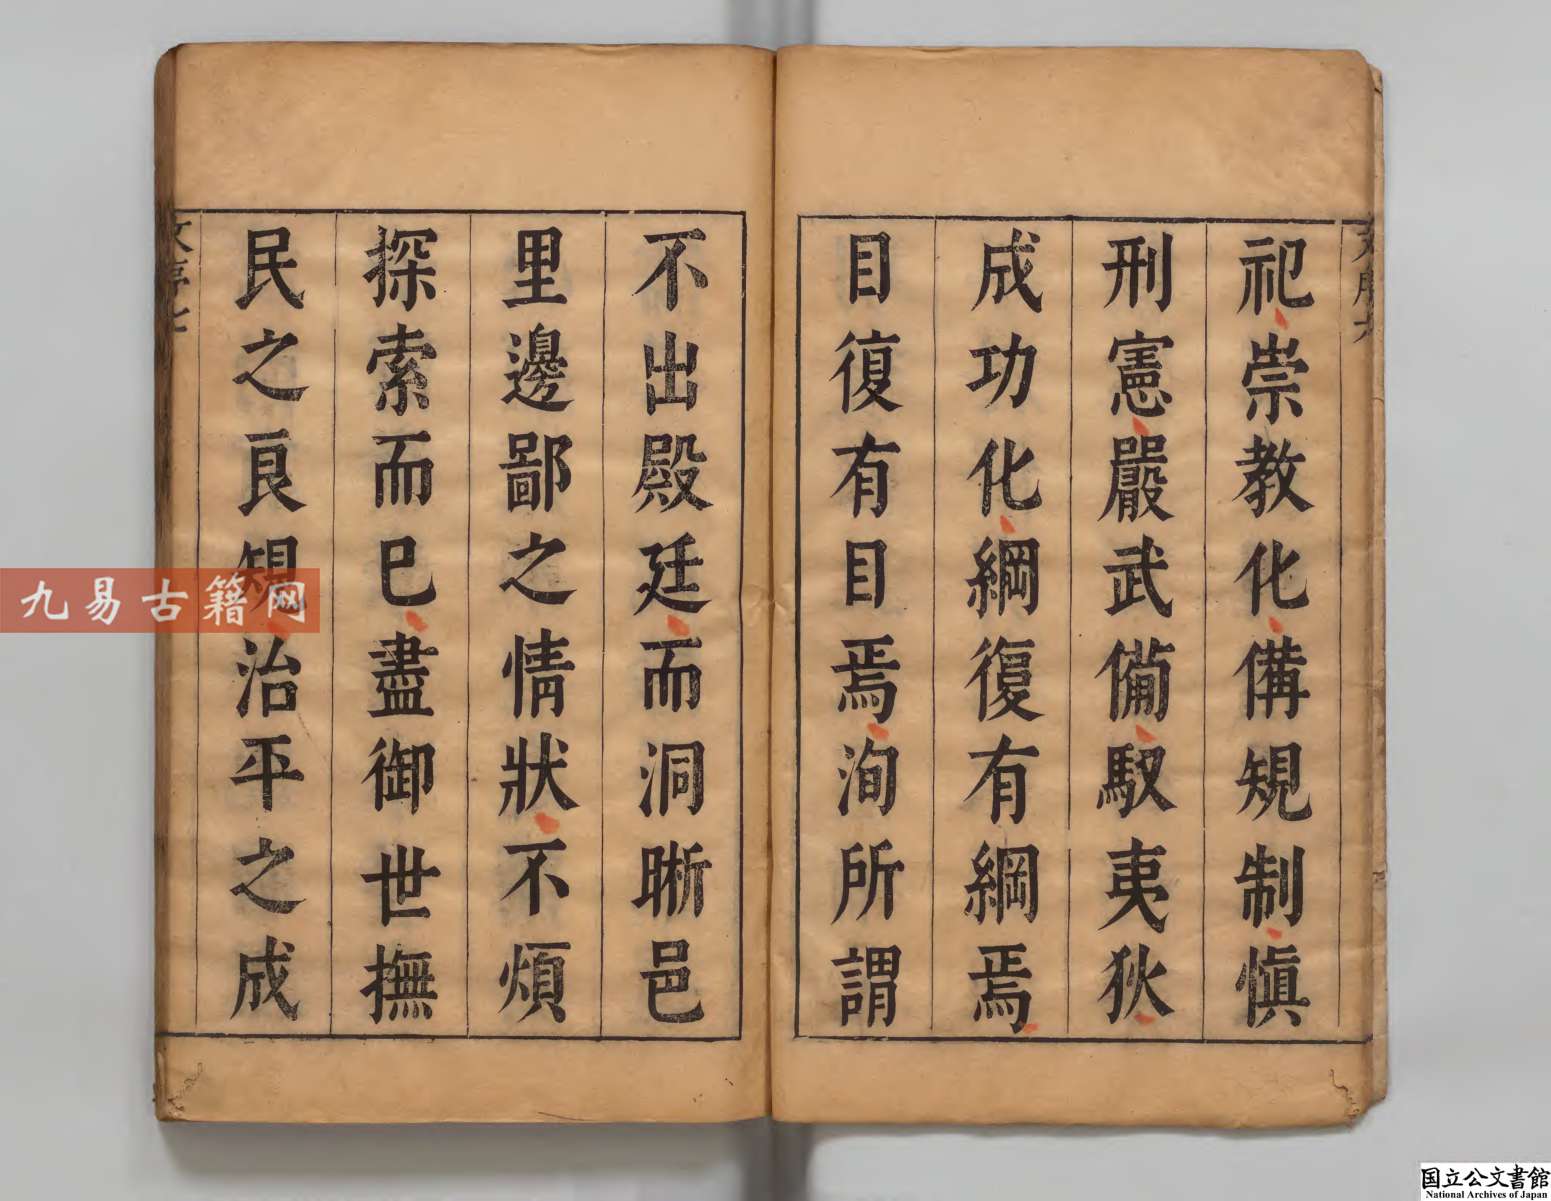 祀崇教化備規制愼
刑憲嚴武備馭夷狄
成功化綱復有綱焉
目復有目焉洵所謂
不出殿廷而洞晰邑
里邊鄙之情狀不煩
探索而已盡御世撫
民之良規治平之成
九易古籍网
国立公文書館
National Archives of Japan